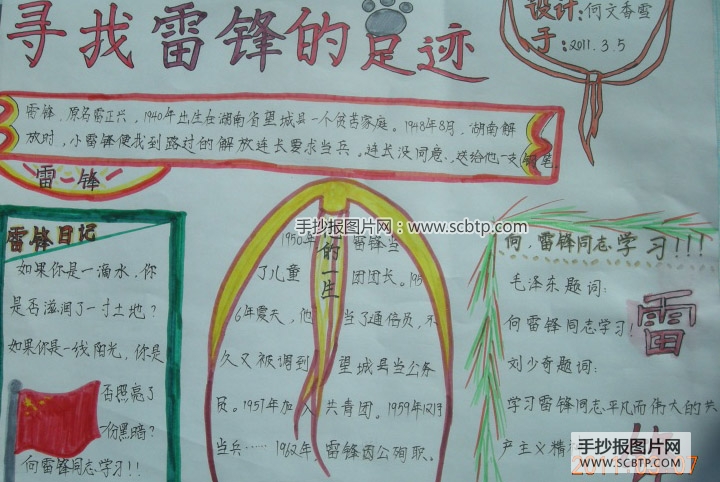 寻找雷锋的足迹
设计:何文香雪
于:2011.3.5
雷锋,原名雷正兴,1940年出生在湖南省望城县一个贫苦家庭。1948年8月,湖南解
放时,小雷锋便找到路过的解放连长要求当兵。连长没同意,送给他一支钢笔
雷锋
手抄报图片网:www.scbtp.com
雷锋日记
如果你是一滴水,你
是否滋润了一寸土地?
如果你是一线阳光,你是
否照亮了
一份黑暗?
向雷锋同志学习!!
的一生
1950年 雷锋当
了儿童 团团长。195
6年夏天,他 当了通信员,不
久又被调到 望城县当公务
员。1957年加入 共青团。1959年12月
当兵……1962年,雷锋因公殉职。
向,雷锋同志学习!!!
毛泽东题词:
向雷锋同志学习!
刘少奇题词:
学习雷锋同志平凡而伟大的共
产主义精
雷
手抄报图片网
SCBTP.COM